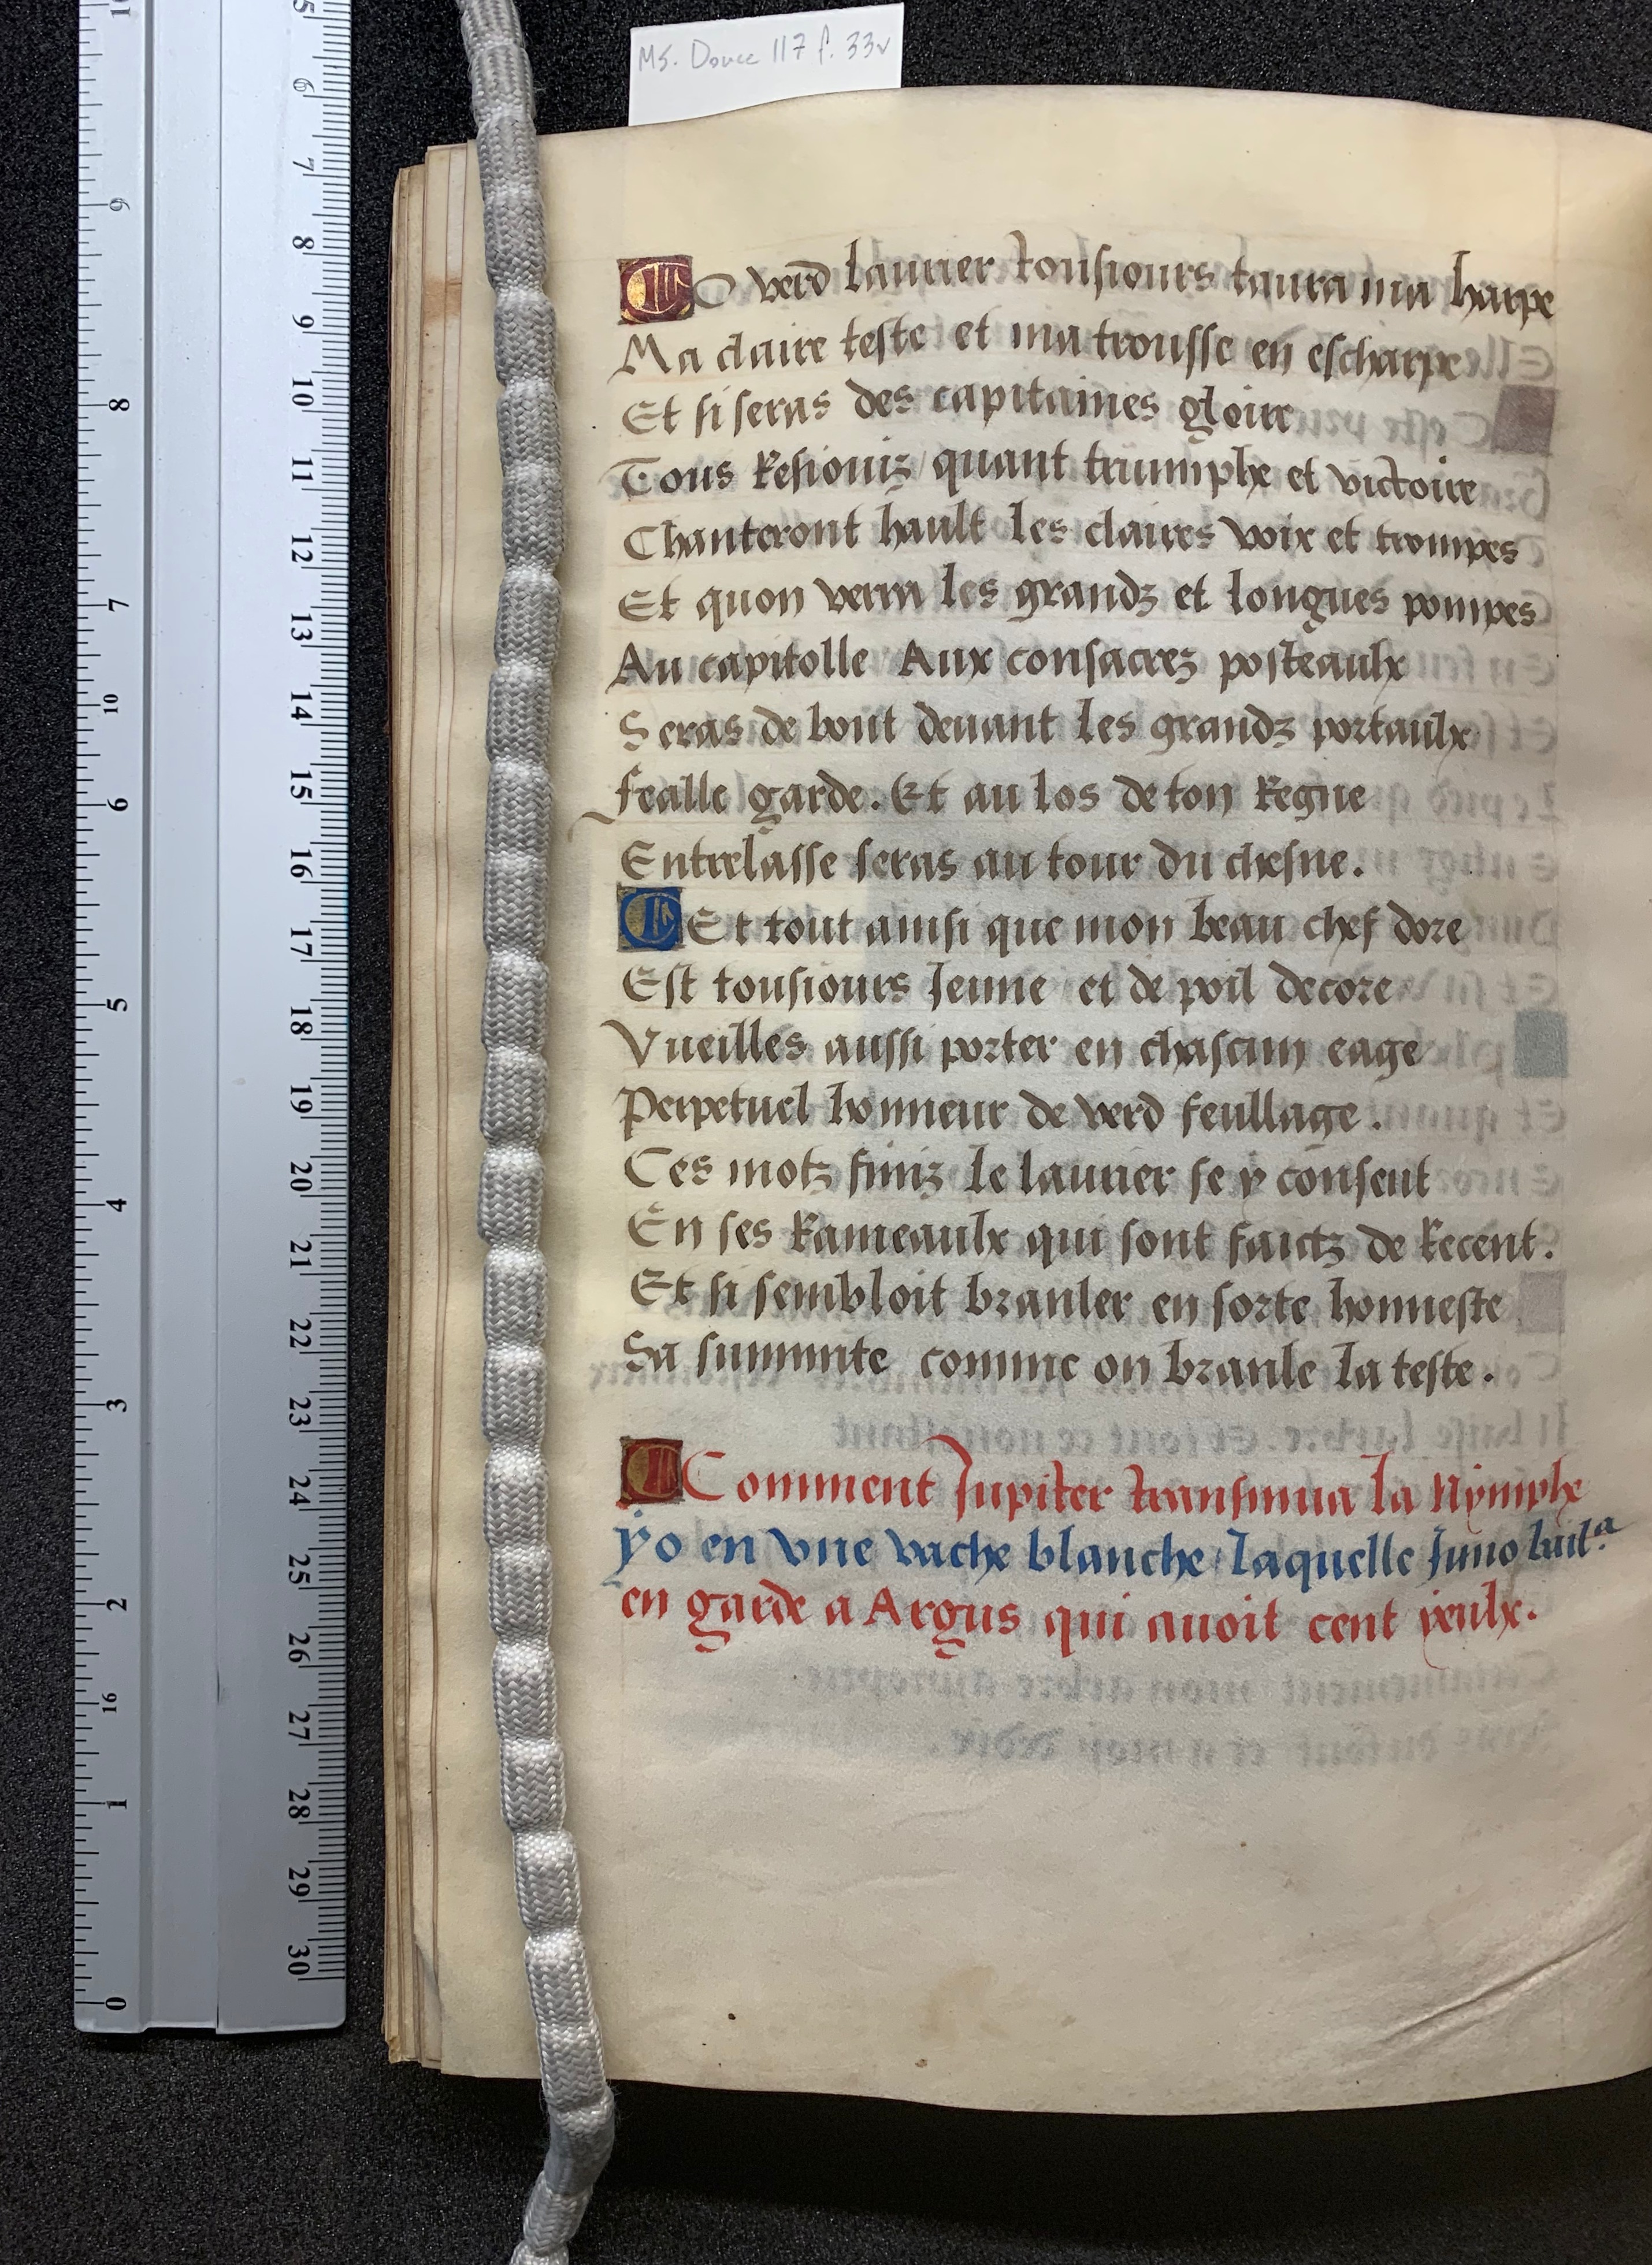 MS. Douce 117 f. 33v
O verd laurier tousiours taura ma harpe
Ma claire teste et ma trousse en escharpe
Et si seras des capitaines gloire
Tous Resiouiz quant triumphe et victoire
Chanteront hault les claires voix et trompes
Et quon verra les grandz et longues pompes
Au capitolle Aux consacrez posteaulx
Seras de bout deuant les grandz portaulx
fealle garde. Et au los de ton Regne
Entrelasse seras au tour du chesne.
Et tout ainsi que mon beau chef dore
Est tousiours Jeune et de poil decore
Vueilles aussi porter en chascun eage
Perpetuel honneur de verd feullage.
Ces motz finiz le laurier se y consent
En ses Rameaulx qui sont faictz de Recent.
Et si sembloit branler en sorte honneste
Sa summite comme on branle la teste.
Comment Jupiter transmua la Nymphe
yo en vne vache blanche laquelle Juno bail.a
en garde a Argus qui auoit cent yeulx.